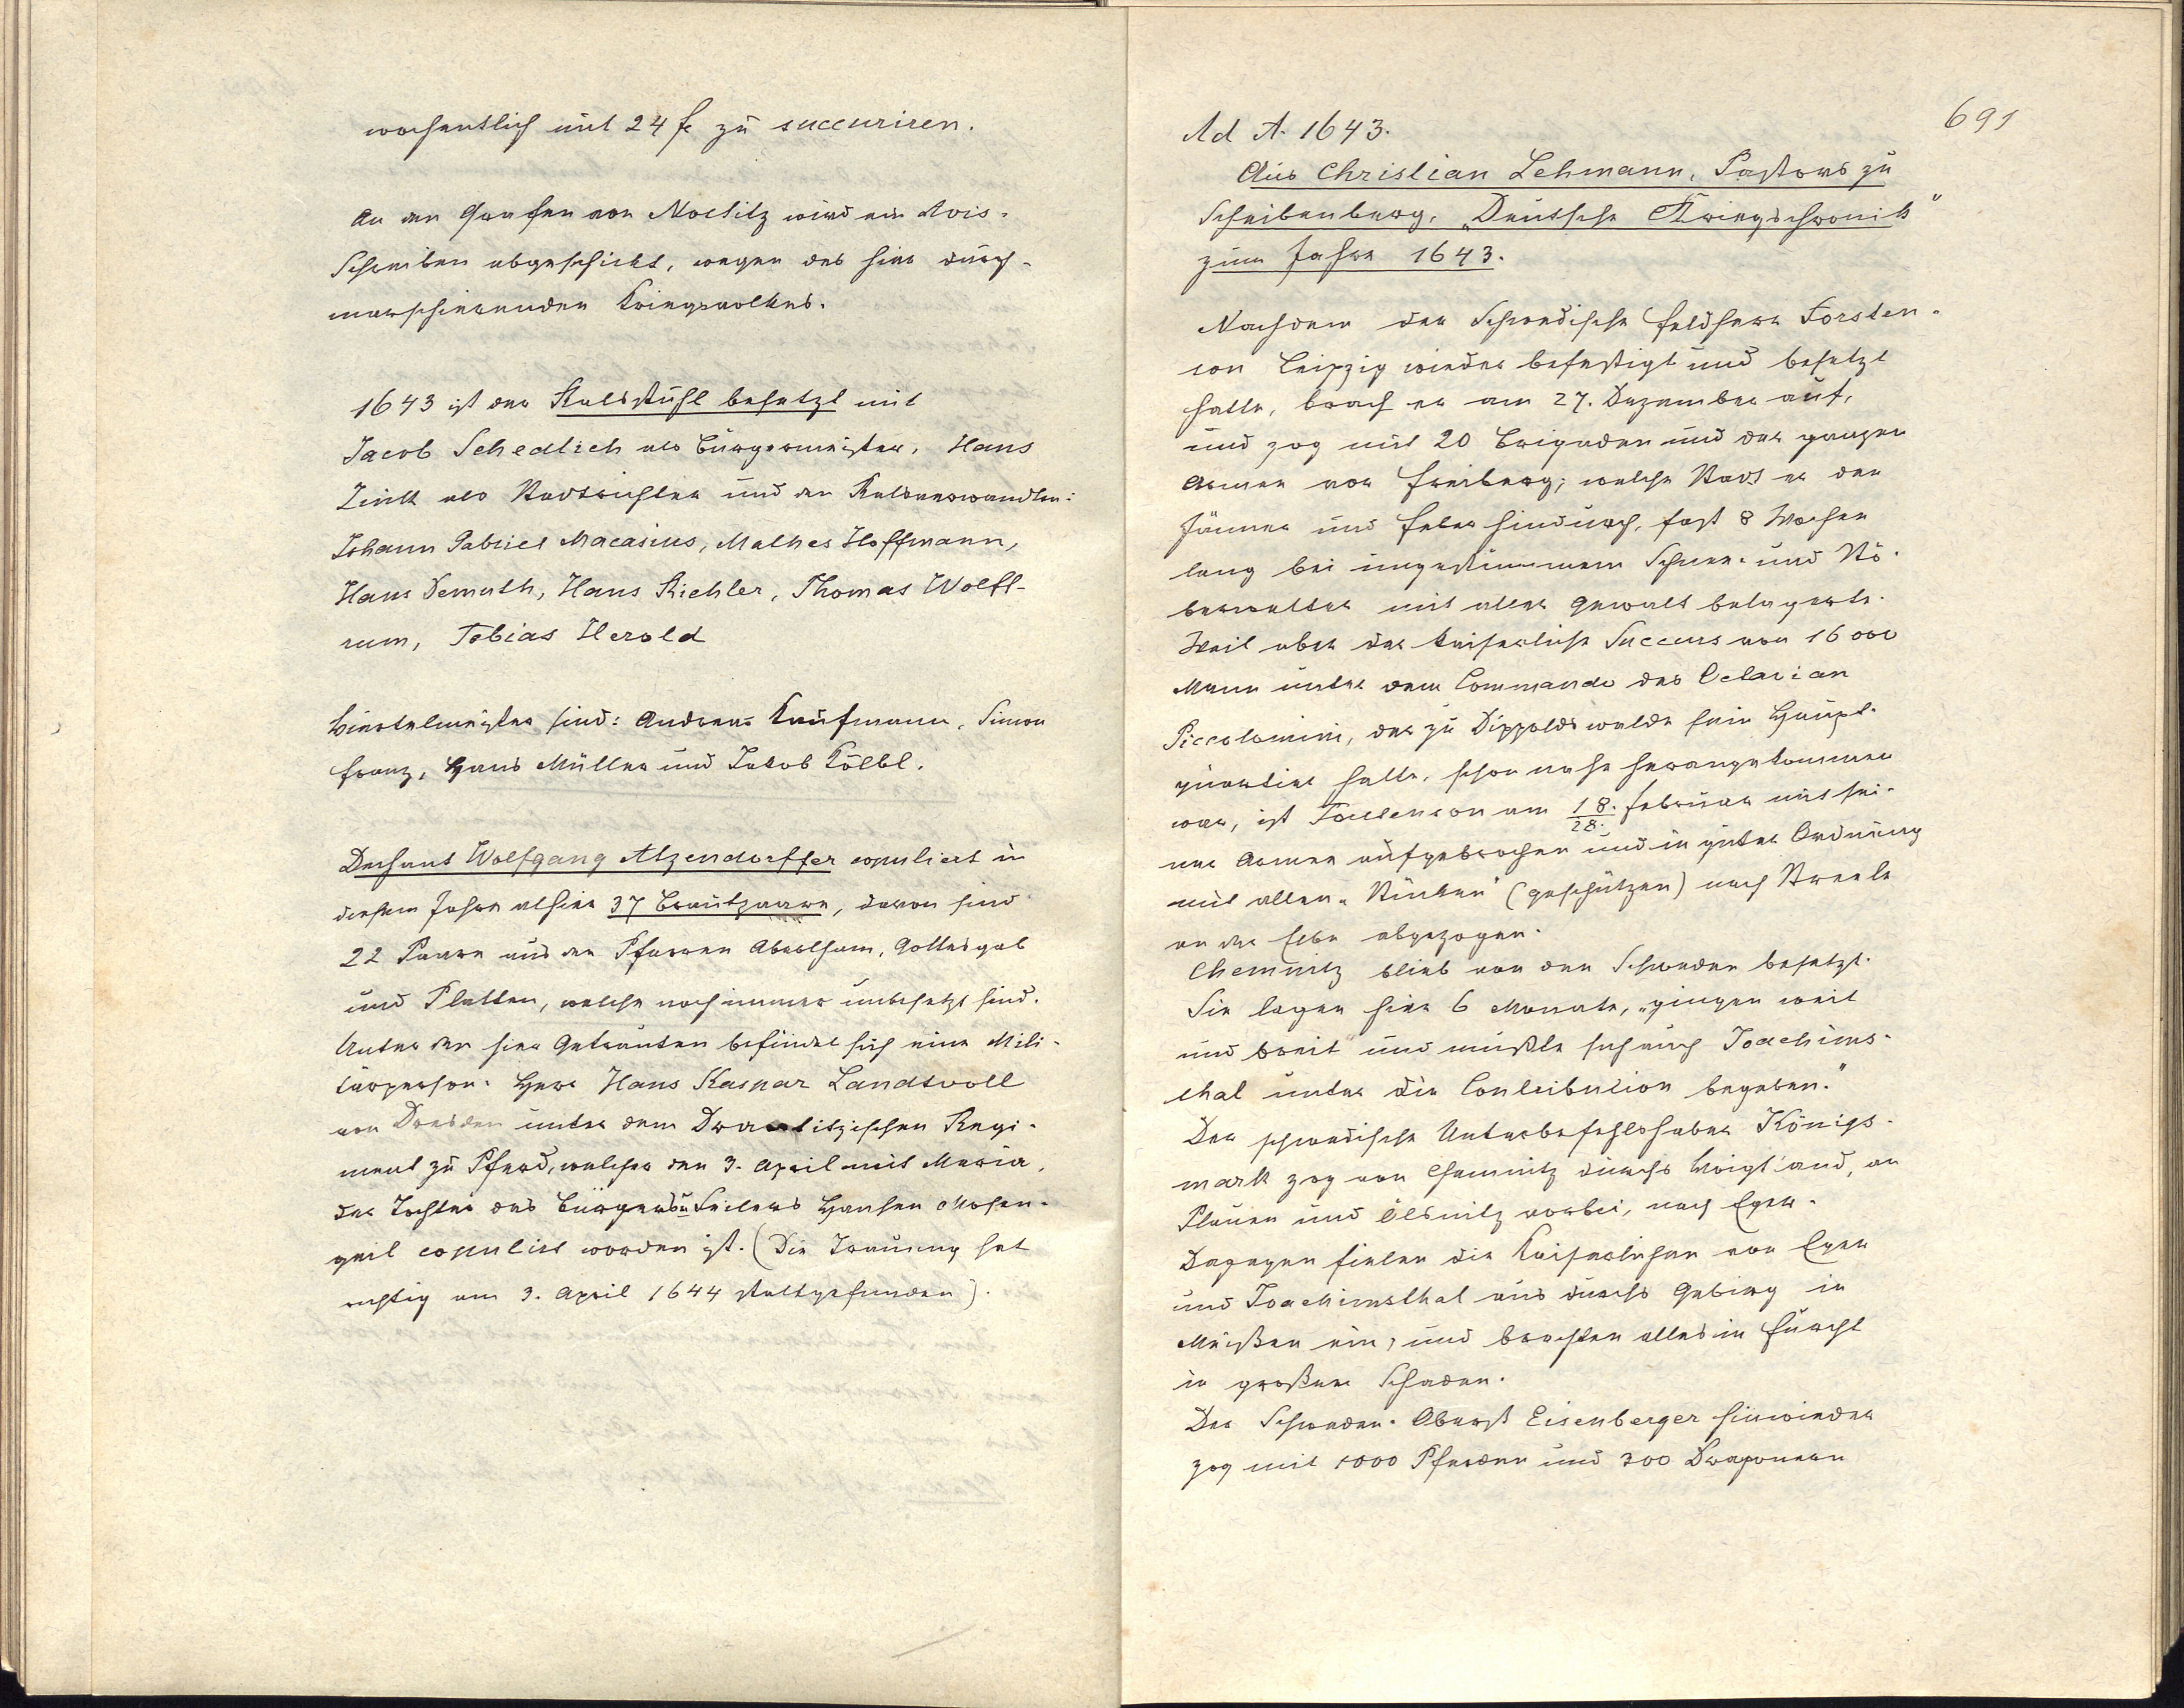 wochentlich mit 24 fl zu succuriren.
An den Grafen von Nostitz wird ein Avis-
Schreiben abgeschickt, wegen des hier durch-
marschierenden Kriegsvolkes.
1643 ist der Ratsstuhl besetzt mit
Jacob Schedlich als Bürgermeister, Hans
Zink als Stadtrichter und den Ratsverwandten:
Johann Gabriel Macasius, Mathes Hoffmann,
Hans Demuth, Hans Richter, Thomas Wolff-
rum, Tobias Herold
Viertelmeister sind: Andreas Kaufmann, Simon
Franz, Hans Müller und Jakob Kölbl.
Dechant Wolfgang Atzendorffer copuliert in
diesem Jahre alhier 37 Brautpaare, davon sind
22 Paare aus den Pfarren Abertham, Gottesgab
und Platten, welche noch immer unbesetzt sind.
Unter den hier Getrauten befindet sich eine Mili-
tärperson. Herr Hans Kaspar Landtvoll
von Dresden unter dem Regi-
ment zu Pferd, welcher den 3. April mit Maria,
der Tochter des Bürgers u Seilers Hansen Mosen-
geil copuliert worden ist. (Die Trauung hat
richtig am 3. April 1644 stattgefunden).
691
Ad A. 1643.
Aus Christian Lehmann, Pastors zu
Scheibenberg, „Deutsche Kriegschronik"
zum Jahre 1643.
Nachdem der Schwedische Feldherr Torsten-
son Leipzig wieder befestigt und besetzt
hatte, brach er am 27. Dezember auf,
und zog mit 20 Brigaden und der ganzen
Armee vor Freiberg; welche Stadt er den
Jänner und Feber hindurch, fast 8 Wochen
lang bei ungestümmem Schnee- und Stö-
berwetter mit aller Gewalt belagerte.
Weil aber der kaiserliche Succurs von 16 000
Mann unter dem Commando des Octavian
Piccolomini, der zu Dippoldswalde sein Haupt-
quartier hatte, schon nahe herangekommen
war, ist Torstenson am 18./28. Februar mit sei-
ner Armee aufgebrochen und in guter Ordnung
mit allen „Stücken" (Geschützen) nach Strehle
an der Elbe abgezogen.
Chemnitz blieb von den Schweden besetzt.
Sie lagen hier 6 Monate, „gingen weit
und breit und mußte sich auch Joachims-
thal unter die Contribution begeben."
Der schwedische Unterbefehlshaber Königs-
mark zog von Chemnitz durchs Voigtland, an
Plauen und Ölsnitz vorbei, nach Eger.
Dagegen fielen die Kaiserlichen von Eger
und Joachimsthal aus durchs Gebirg in
Meißen ein, und brachten alles in Furcht
in großen Schaden.
Der Schweden-Oberst Eisenberger hinwieder
zog mit 1000 Pferden und 300 Dragonern